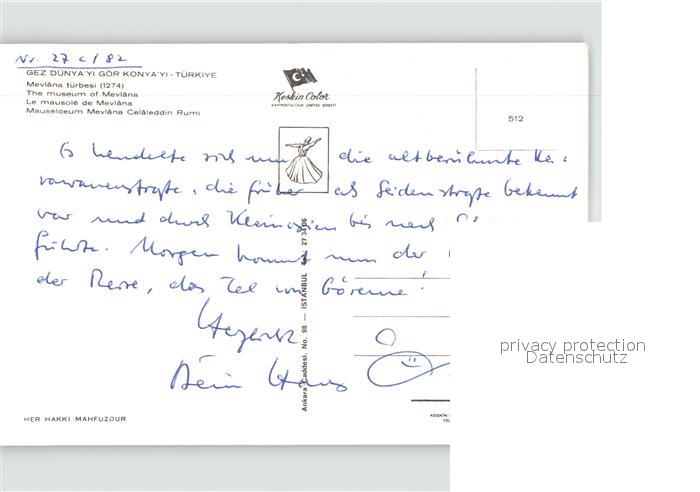 Nr. 27 c/82
GEZ DÜNYA'YI GÖR KONYA'YI - TÜRKIYE
Mevlâna türbesi (1274)
The museum of Mevlâna
Le mausolé de Mevlâna
Mauseloeum Mevlâna Celâleddin Rumi
Keskin Color
KARTPOSTALCILIK LIMITED ŞIRKETI
512
Es handelte sich um die altberühmte Ka-
rawanenstraße, die früher als Seidenstraße bekannt
war und durch Kleinasien bis nach
führte. Morgen kommt nun der
der Reise, das Tal von Göreme!
Herzlich
Dein Hans
Ankara Caddesi, No. 98 — ISTANBUL
HER HAKKI MAHFUZDUR
KESKIN
privacy protection
Datenschutz